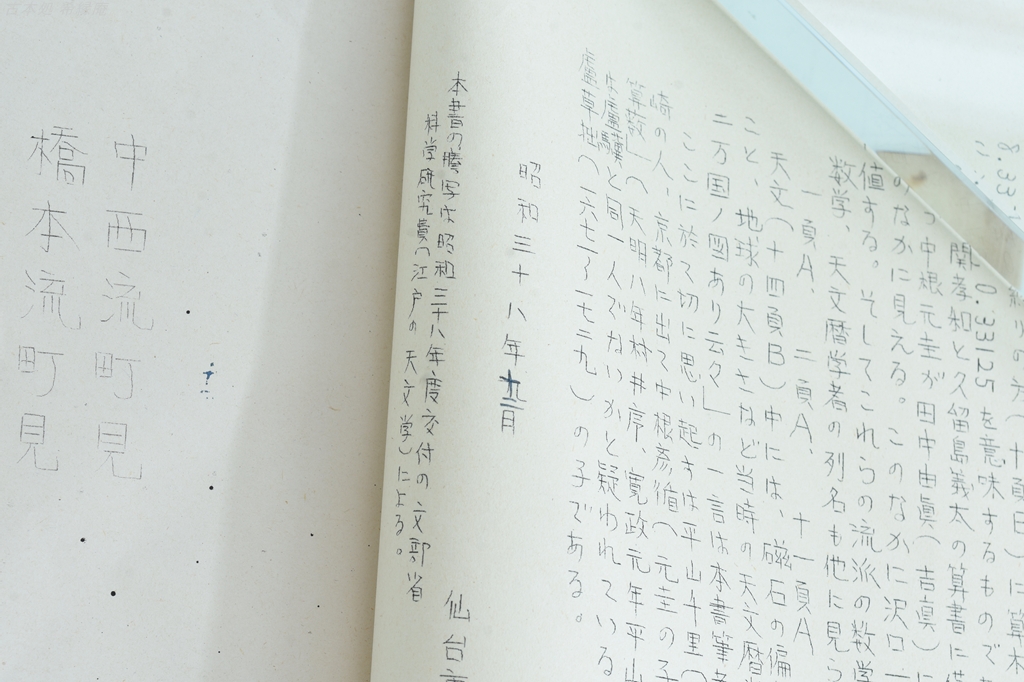 8.33
0.33125を意味するものであ
関孝和と久留島義太の算書に
中根元圭が田中由眞(吉眞)に
のなかに見える。このなかに沢口一
値する。そしてこれらの流派の数学
数学、天文暦学者の列名も他に見ら
一頁A、二頁A、十一頁A
天文(十四頁B)中には、磁石の偏
こと、地球の大きさなど当時の天文暦
ニ万国ノ図あり云々」の一言は本書筆者
ここに於て切に思い起すは平山千里(
崎の人、京都に出て中根彦循(元圭の子
算藪」(天明八年村井序、寛政元年平山
は盧驥と同一人でないかと疑われている
盧草拙(一六七一~一七二九)の子である。
昭和三十八年 月
仙台市
本書の謄写は昭和三十八年度交付の文部省
科学研究費(江戸の天文学)による。
中西流町見
橋本流町見